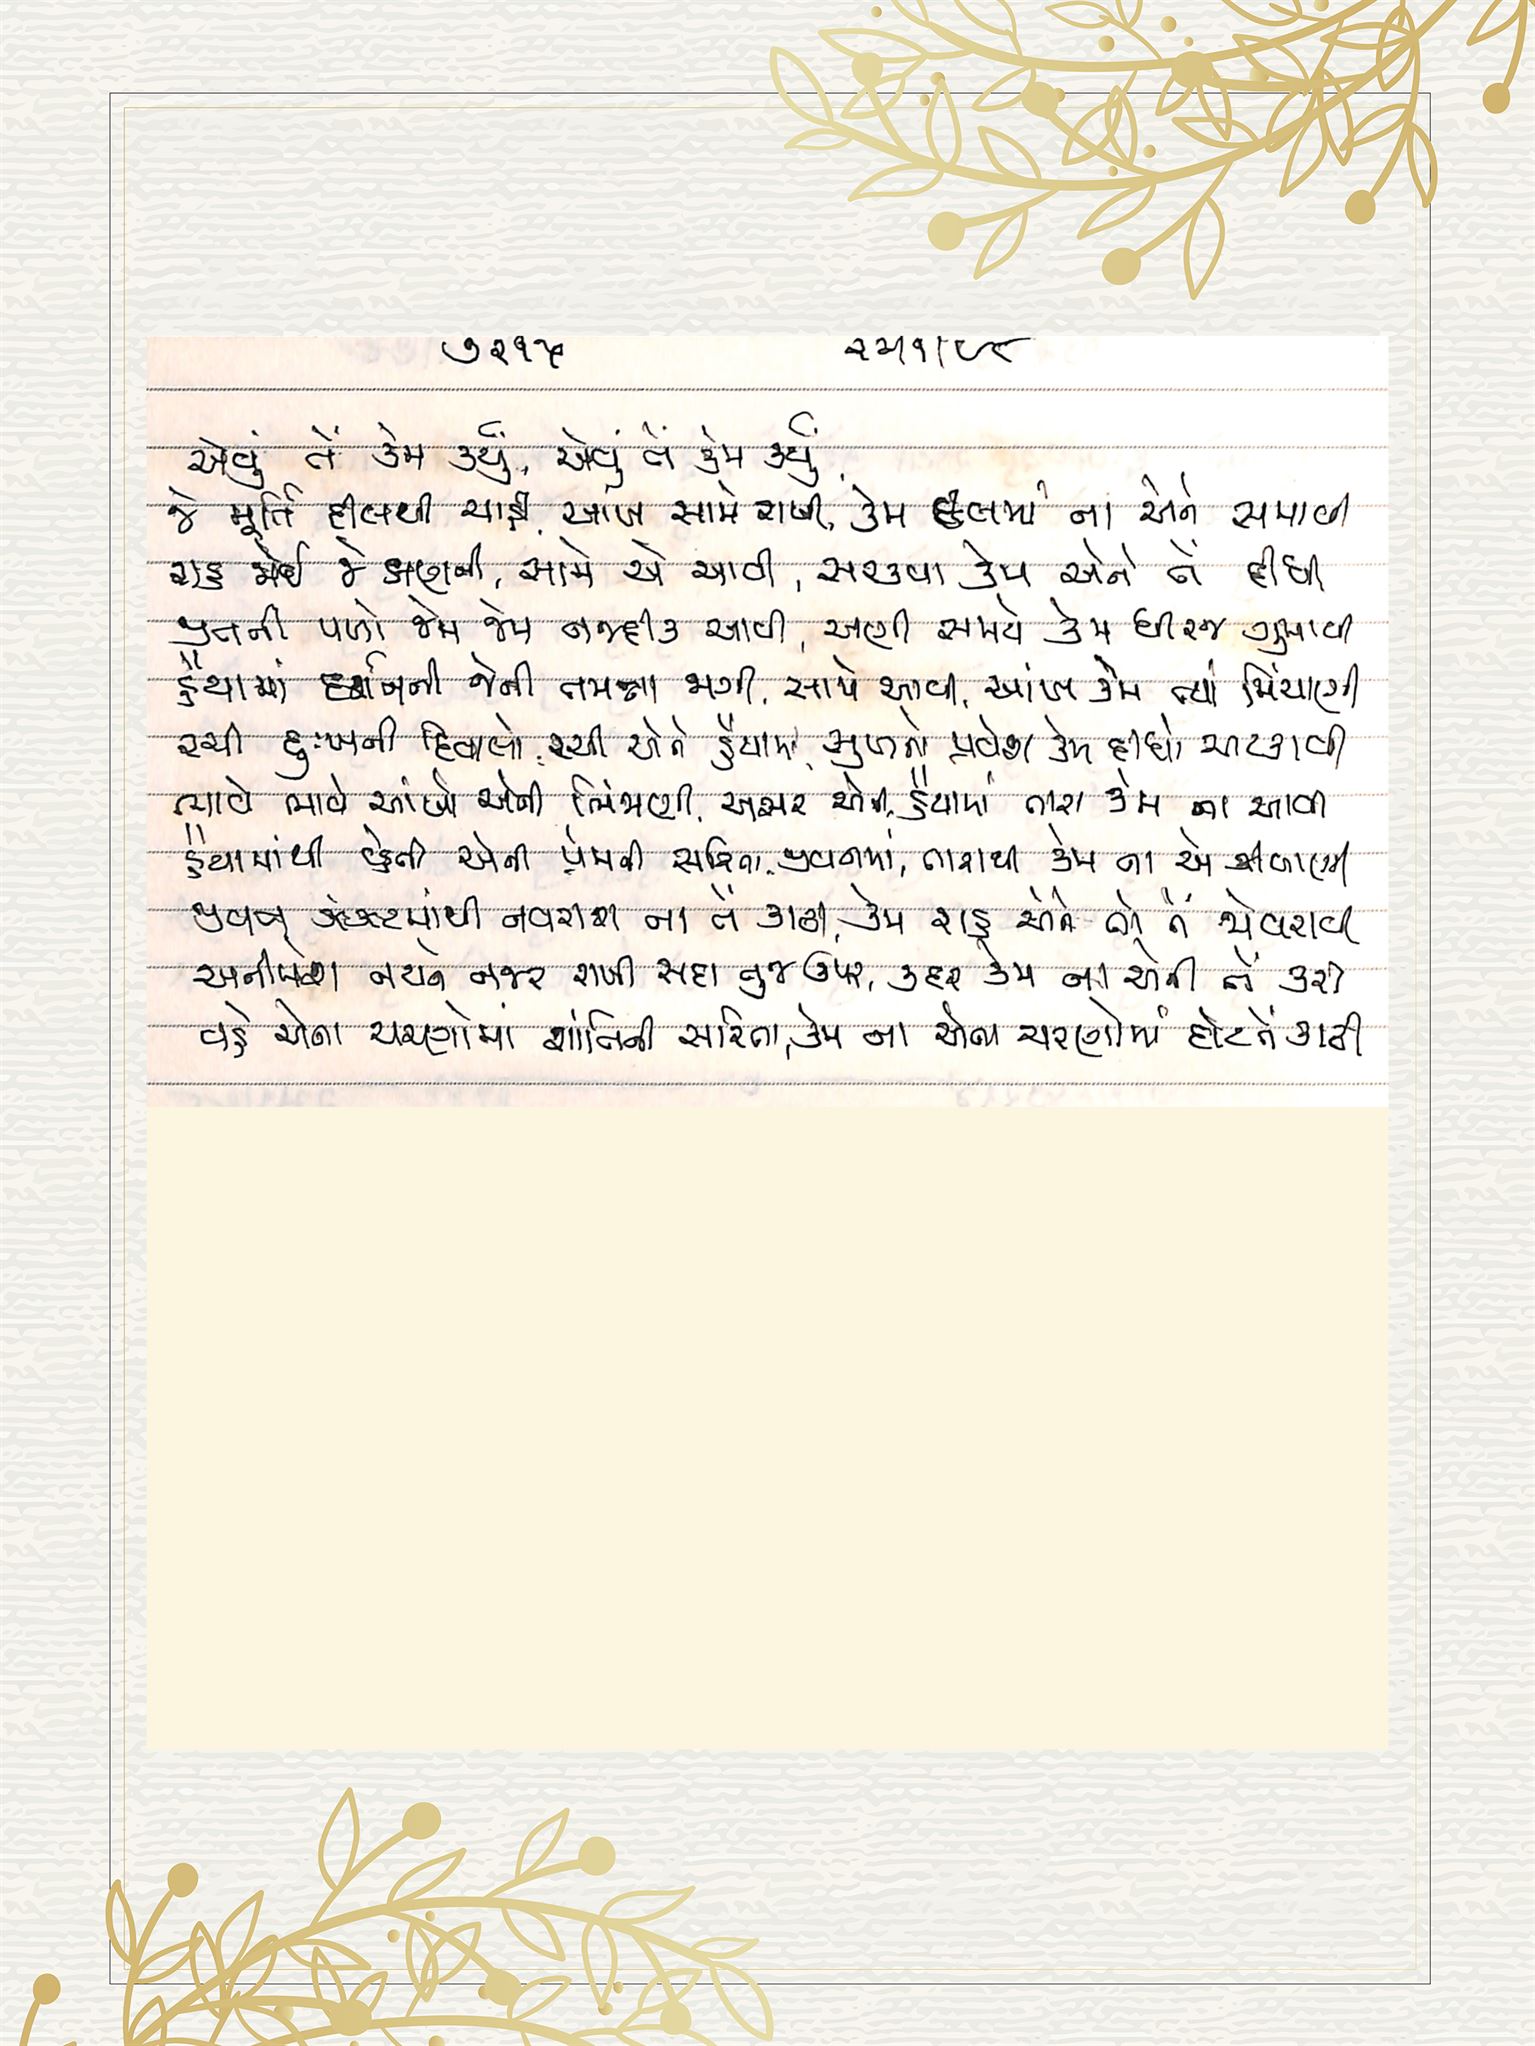 ૭૨૧૫ ૨૫/૧/૯૮
એવું તેં કેમ કર્યું, એવું તેં કેમ કર્યું
જે મૂર્તિ દીલથી ચાહી, આંખ સામે રાખી, કેમ દિલમાં ના એને સમાવી
રાહ જોઈ જે ક્ષણની, સામે એ આવી, સરકવા કેમ એને તેં દીધી
જીતની પળો જેમ જેમ નજદીક આવી, અણી સમયે કેમ ધીરજ ગુમાવી
હૈયામાં દર્શનની જેની તમન્ના ભરી, સામે આવી, આંખ કેમ ત્યાં મિંચાણી
રચી દુઃખની દિવાલો રચી એને હૈયામાં, સુખનો પ્રવેશ કેમ દીધો અટકાવી
ભાવે ભાવે આંખો એની ભિંજાણી, અસર એની હૈયામાં તારા કેમ ના આવી
હૈયામાંથી વ્હેતી એની પ્રેમની સરિતા જીવનમાં, તારાથી કેમ ના એ ઝીલાણી
જીવન ઝંઝટમાંથી નવરાશ ના તેં કાઢી, કેમ રાહ એને તેં જોવરાવી
અનીમેશ નયને નજર રાખી સદા તુજ ઉપર, કદર કેમ ના એની તેં કરી
વહે એના ચરણોમાં શાંતિની સરિતા, કેમ ના એના ચરણોમાં દોટ તેં કાઢી